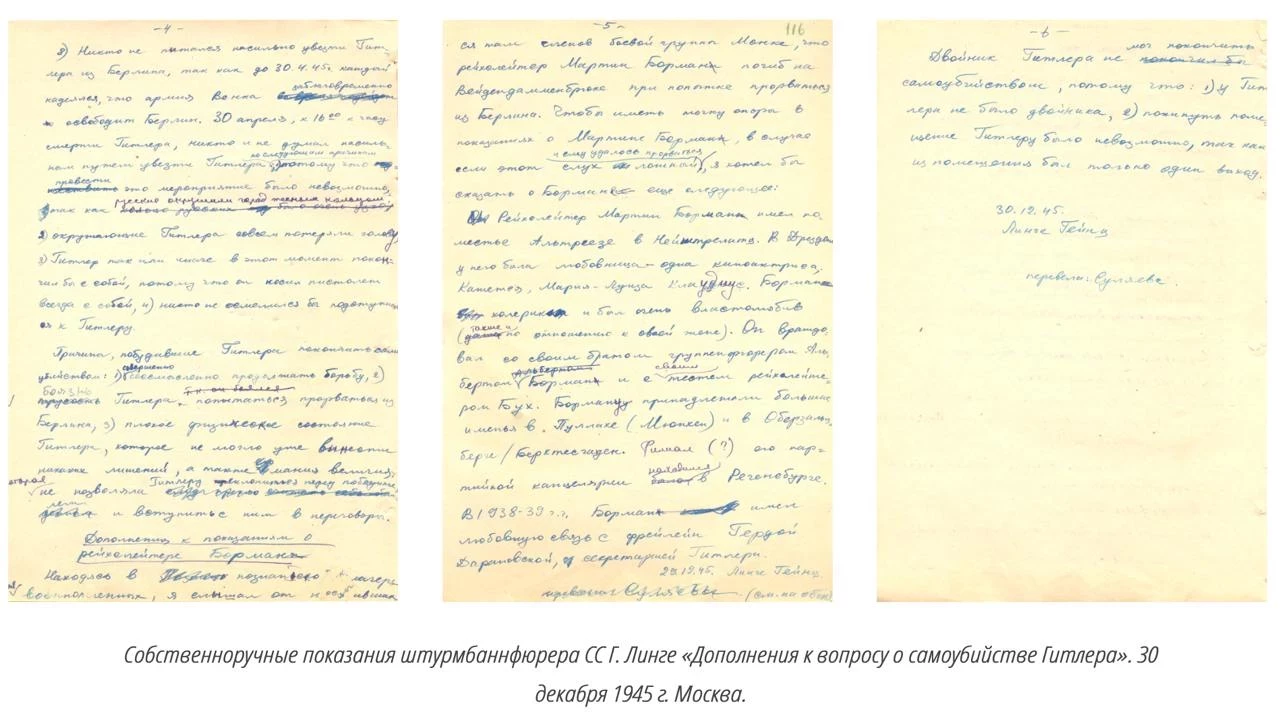 -4-
8) Никто не пытался насильно увезти Гит-
лера из Берлина, так как до 30.4.45. каждый
заблаговременно
надеялся, что армия Венка
освободит Берлин. 30 апреля, к 16⁰⁰ к часу
смерти Гитлера, никто и не думал насиль-
ным путем увезти Гитлера, потому что
по следующим причинам
провести
это мероприятие было невозможно;
русские окружили город тесным кольцом;
так как
2) окружающие Гитлера совсем потеряли голову,
3) Гитлер так или иначе в этот момент покон-
чил бы с собой, потому что он носил пистолет
всегда с собой, 4) никто не осмелился бы подступить-
ся к Гитлеру.
Причины, побудившие Гитлера покончить само
убийством: 1) бессмысленно продолжать борьбу, 2)
совершенно
боязнь т.к. он боялся
трусость Гитлера попытаться прорваться из
Берлина, 3) плохое физическое состояние
Гитлера, которое не могло уже вынести
никаких лишений, а также мания величия,
которая
не позволяла Гитлеру преклониться перед победите
лем
и вступить с ним в переговоры.
Дополнения к показаниям о
рейхслейтере Борман
Находясь в познань лагере
военнопленных, я слышал от находивших
-5-
116
ся там членов боевой группы Монке, что
рейхслейтер Мартин Борман погиб на
Вейдендамменбрюке при попытке прорваться
из Берлина. Чтобы иметь точку опоры в
показаниях о Мартине Борман, в случае
и ему удалось прорваться
если этот слух ложный, я хотел бы
сказать о Борман еще следующее:
Рейхслейтер Мартин Борман имел по
местье Альтреезе в Нейштрелитц. В Дрездене
у него была любовница - одна киноактриса,
Мария-Луиза Клаудиус. Борман
холерик и был очень властолюбив
также и
(даже по отношению к своей жене). Он враждо
вал со своим братом группенфюрером Аль
Альбертом своим
бертом Борман и с тестем рейхслейте-
ром Бух. Борману принадлежали большие
именья в. Пуллахе (Мюнхен) и в Оберзальц
берге / Берхтесгаден. Филиал (?) его пар-
находился
тийной канцелярии был в Регенсбурге.
В 1938-39 г.г. Борман имел
любовную связь с фрейлейн Гердой
Дарановской, секретаршей Гитлера.
29.12.45. Линге Гейнц
перевела: Суляева (см. на обор.)
-6-
мог покончить
Двойник Гитлера не покончил бы
самоубийством, потому что: 1) у Гит
лера не было двойника, 2) покинуть поме-
щение Гитлеру было невозможно, так как
из помещения был только один выход.
30.12.45.
Линге Гейнц
перевела: Суляева.
Собственноручные показания штурмбаннфюрера СС Г. Линге «Дополнения к вопросу о самоубийстве Гитлера». 30
декабря 1945 г. Москва.